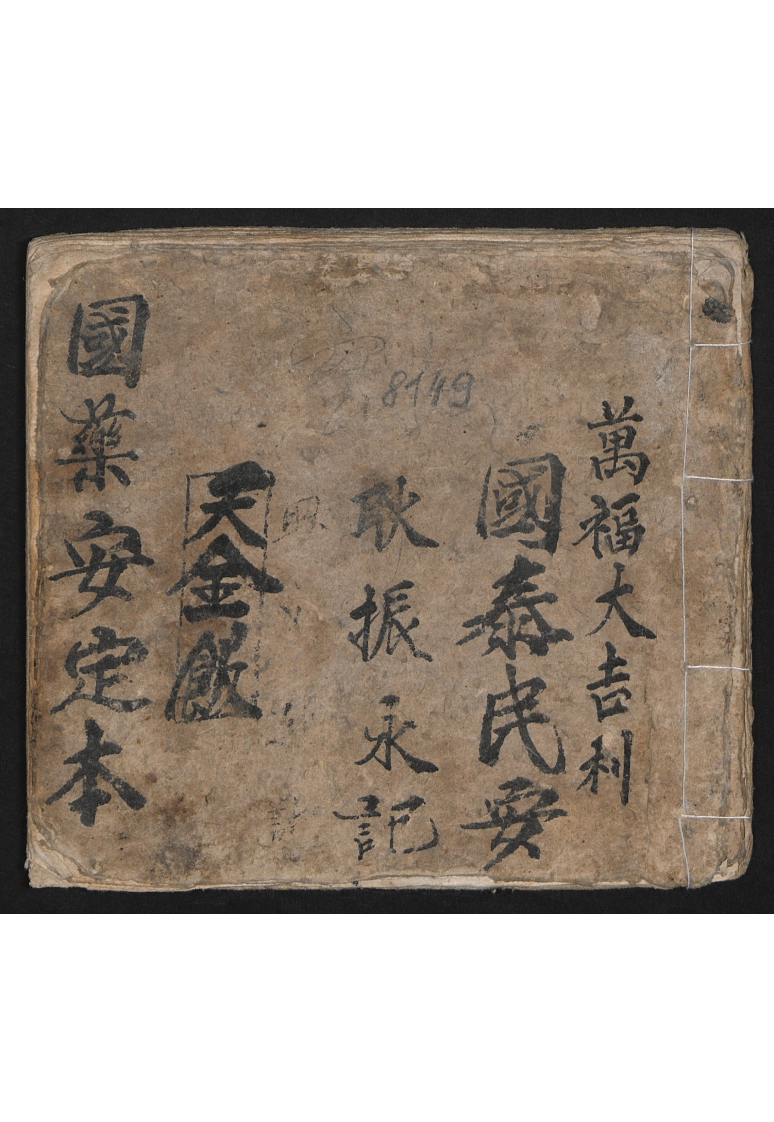 萬福大吉利
國泰民安
耿振永記
天金飲
國藥安定本
8149